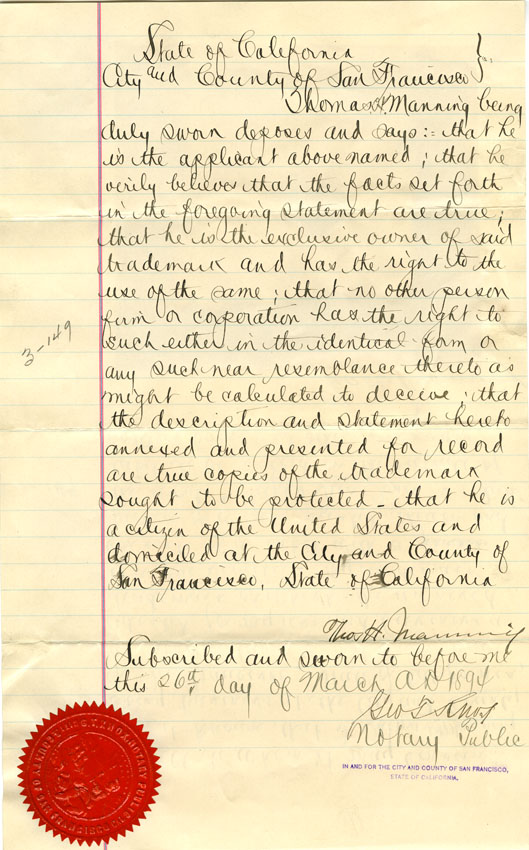 State of California }
City and County of San Francisco
Thomas H Manning being
duly sworn deposes and says:- that he
is the applicant above named; that he
verily believes that the facts set forth
in the foregoing statement are true;
that he is the exclusive owner of said
trademark and has the right to the
use of the same; that no other person
firm or corporation has the right to
such either in the identical form or
any such near resemblance thereto as
might be calculated to deceive; that
the description and statement hereto
annexed and presented for record
are true copies of the trademark
sought to be protected - that he is
a citizen of the United States and
domiciled at the City and County of
San Francisco, State of California
Thos. H. Manning
Subscribed and sworn to before me
this 26th day of March A D 1894
Geo T Knox
Notary Public
IN AND FOR THE CITY AND COUNTY OF SAN FRANCISCO,
STATE OF CALIFORNIA.
3-149